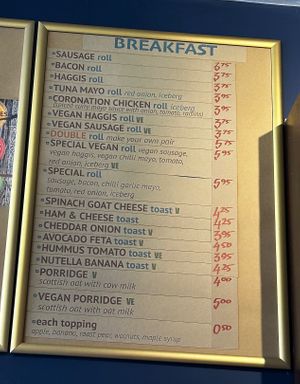 BREAKFAST
SAUSAGE roll
BACON roll 6.75
HAGGIS roll 3.75
TUNA MAYO roll red onion, iceberg 3.75
CORONATION CHICKEN roll iceberg 3.95
curry mayo sauce with onion, tomato, raisins
VEGAN HAGGIS roll VE 3.95
VEGAN SAUSAGE roll VE 3.75
DOUBLE roll make your own pair 5.75
SPECIAL VEGAN roll vegan sausage, 5.95
vegan haggis, vegan chilli mayo, tomato,
red onion, iceberg VE
SPECIAL roll 5.95
sausage, bacon, chilli garlic mayo,
tomato, red onion, iceberg
SPINACH GOAT CHEESE toast V 4.25
HAM & CHEESE toast 4.25
CHEDDAR ONION toast V 3.95
AVOCADO FETA toast V 4.50
HUMMUS TOMATO toast VE 3.95
NUTELLA BANANA toast V 4.25
PORRIDGE V 4.00
scottish oat with cow milk
VEGAN PORRIDGE VE 5.00
scottish oat with oat milk
each topping 0.50
apple, banana, roast pear, walnuts, maple syrup